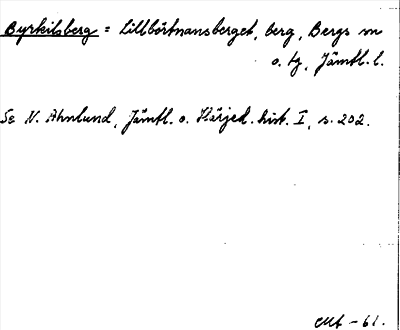 Byrkilsberg = Lillbörtnansberget, berg, Bergs sn
o. tg, Jämtl. l.
Se N. Ahnlund, Jämtl. o. Härjed. hist. I, s. 202.
-61.